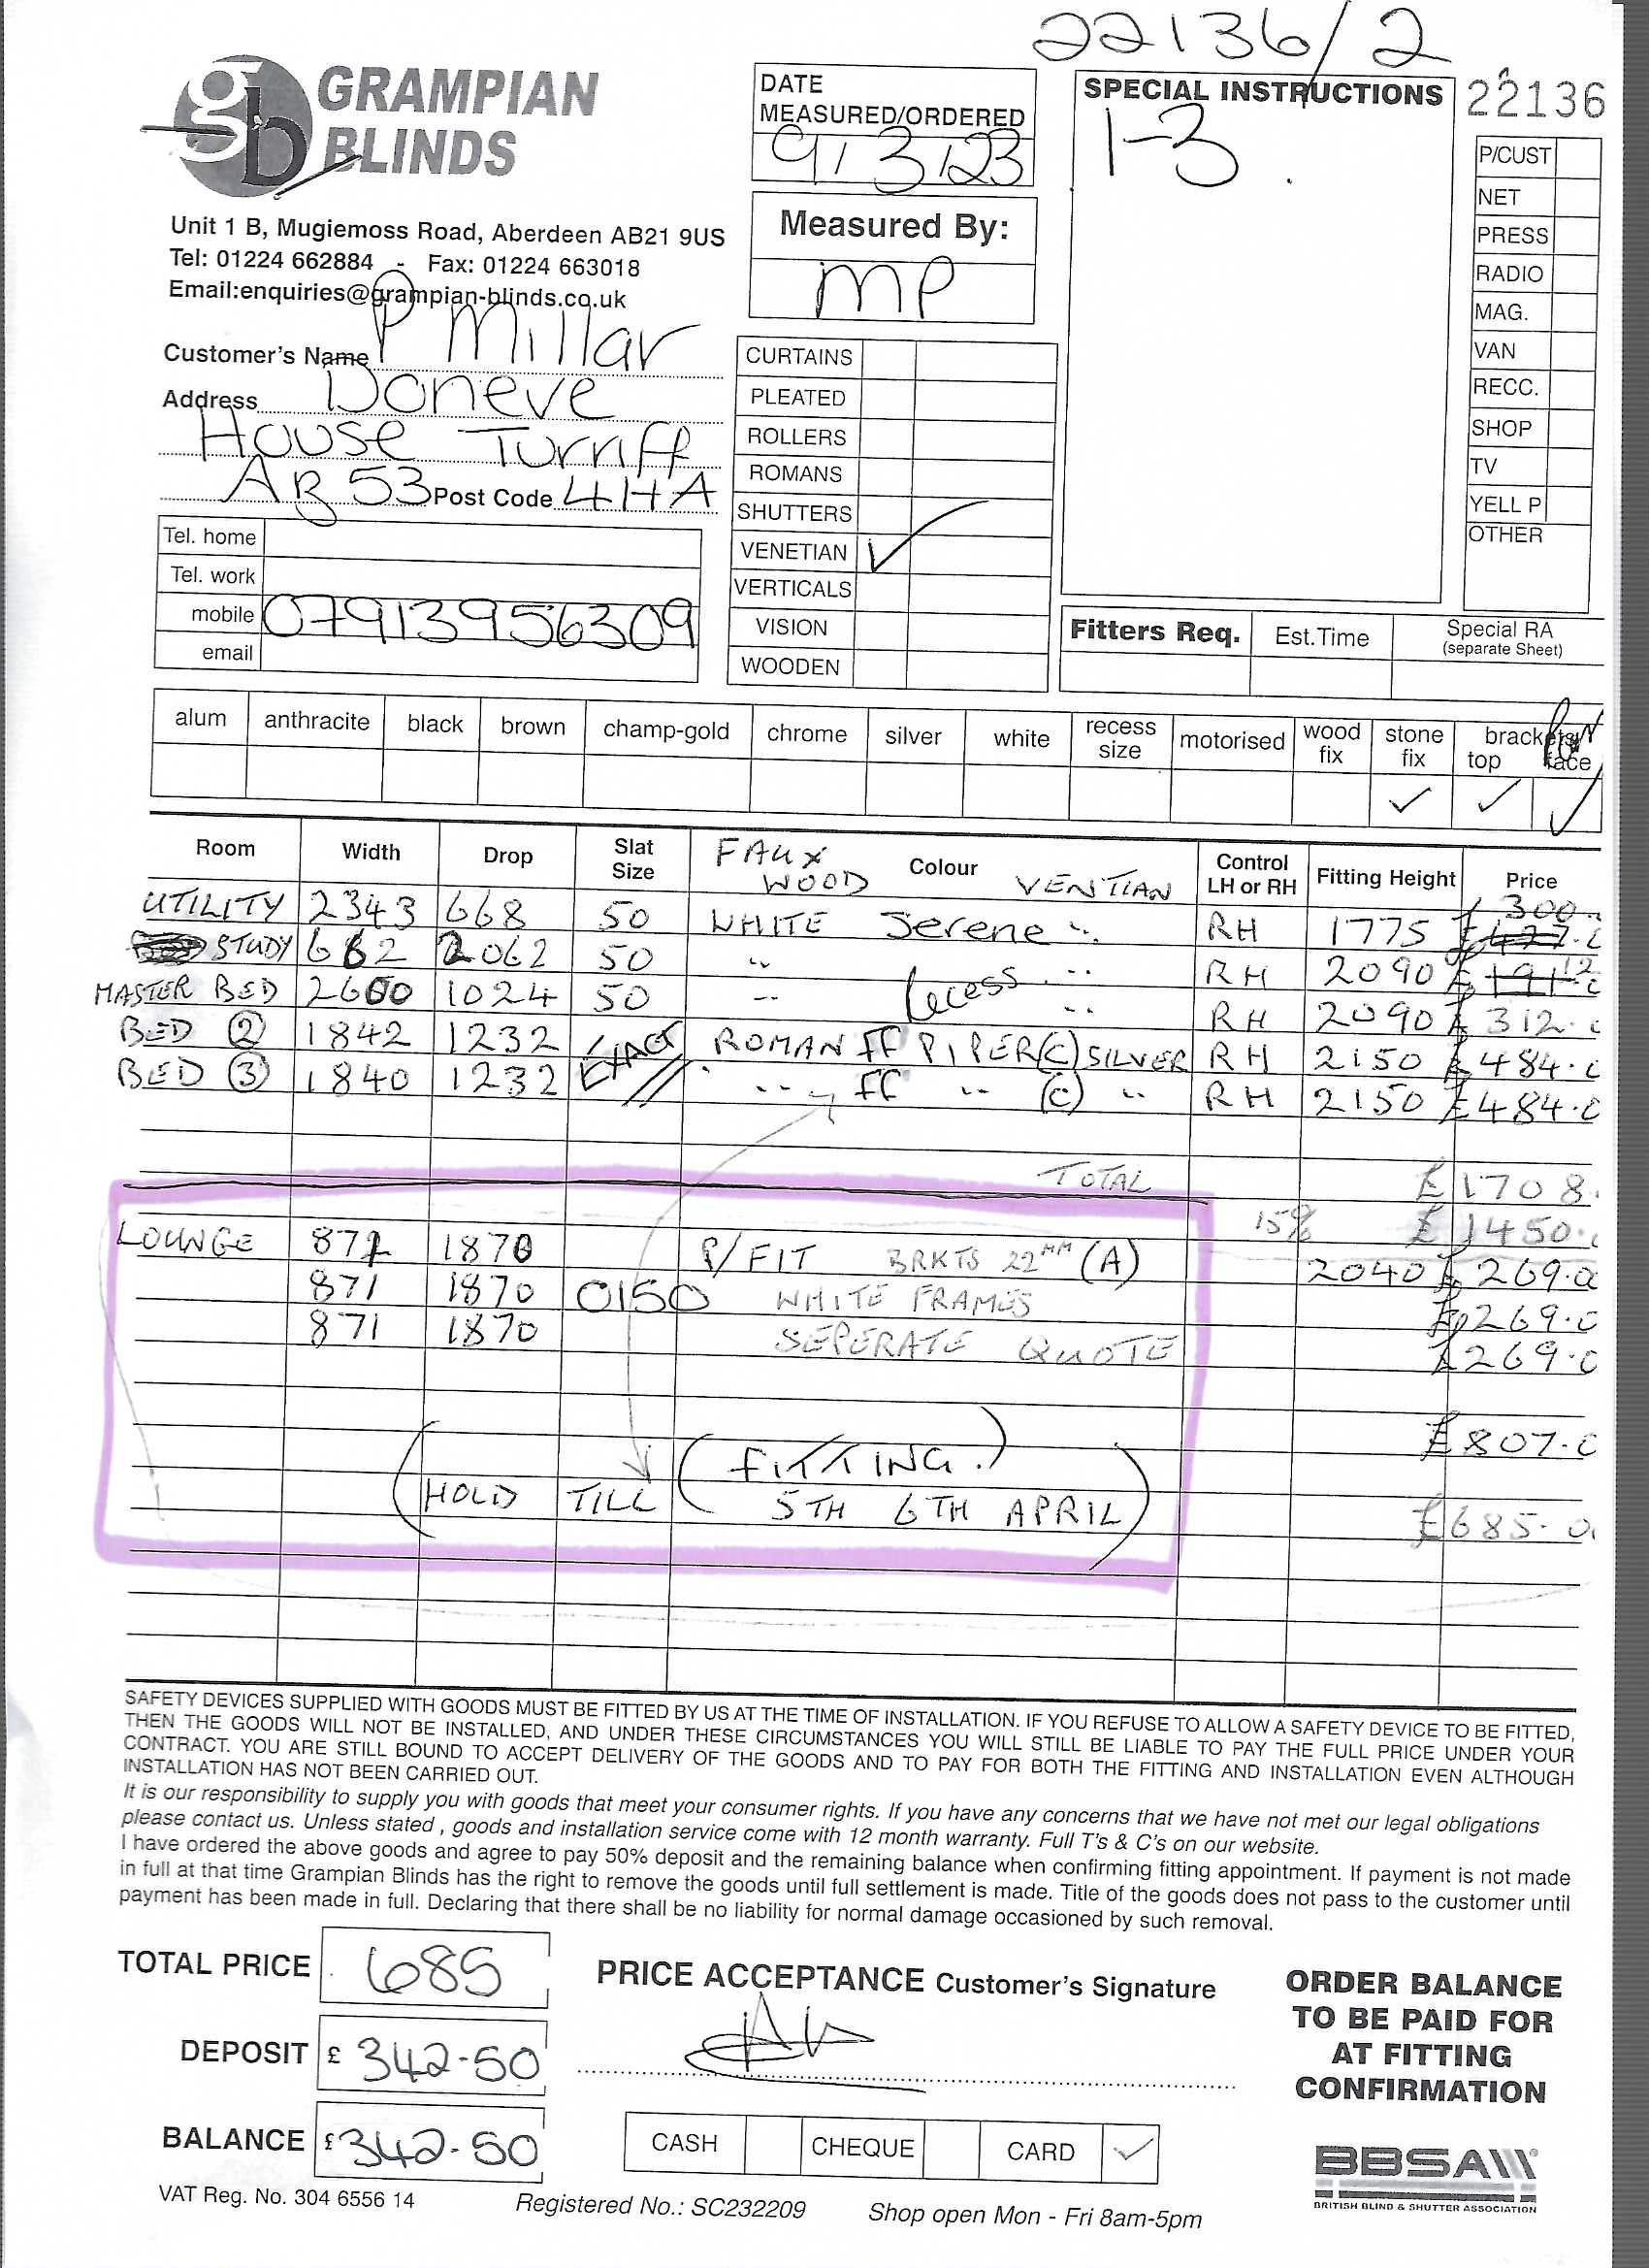 22136/2
GRAMPIAN
BLINDS
Unit 1 B, Mugiemoss Road, Aberdeen AB21 9US
Tel: 01224 662884 - Fax: 01224 663018
Email:enquiries@grampian-blinds.co.uk
Customer's Name P Millar
Address Doneve
House Turriff
AB 53 Post Code 4HA
Tel. home
Tel. work
mobile 07913956309
email
DATE
MEASURED/ORDERED
9/3/23
Measured By:
MP
CURTAINS
PLEATED
ROLLERS
ROMANS
SHUTTERS
VENETIAN ✓
VERTICALS
VISION
WOODEN
SPECIAL INSTRUCTIONS
1-3.
22136
P/CUST
NET
PRESS
RADIO
MAG.
VAN
RECC.
SHOP
TV
YELL P
OTHER
Fitters Req. Est.Time Special RA
(separate Sheet)
alum anthracite black brown champ-gold chrome silver white recess size motorised wood fix stone fix brackets top face
✓ ✓ ✓
Room Width Drop Slat Size FAUX WOOD Colour VENTIAN Control LH or RH Fitting Height Price
UTILITY 2343 668 50 WHITE Serene " RH 1775 £300
STUDY 662 2062 50 " " RH 2090
MASTER BED 2600 1024 50 " recess " RH 2090 £312.
BED ② 1842 1232 EXACT ROMAN FF PIPER(C) SILVER RH 2150 £484.
BED ③ 1840 1232 " FF " (C) " RH 2150 £484.
TOTAL £1708.
15% £1450.
LOUNGE 871 1870 P/FIT BRKTS 22MM (A) 2040 £269.
871 1870 0150 WHITE FRAMES £269.
871 1870 SEPERATE QUOTE £269.
£807.
(FITTING.)
(HOLD TILL 5TH 6TH APRIL)
£685.
SAFETY DEVICES SUPPLIED WITH GOODS MUST BE FITTED BY US AT THE TIME OF INSTALLATION. IF YOU REFUSE TO ALLOW A SAFETY DEVICE TO BE FITTED,
THEN THE GOODS WILL NOT BE INSTALLED, AND UNDER THESE CIRCUMSTANCES YOU WILL STILL BE LIABLE TO PAY THE FULL PRICE UNDER YOUR
CONTRACT. YOU ARE STILL BOUND TO ACCEPT DELIVERY OF THE GOODS AND TO PAY FOR BOTH THE FITTING AND INSTALLATION EVEN ALTHOUGH
INSTALLATION HAS NOT BEEN CARRIED OUT.
It is our responsibility to supply you with goods that meet your consumer rights. If you have any concerns that we have not met our legal obligations
please contact us. Unless stated , goods and installation service come with 12 month warranty. Full T's & C's on our website.
I have ordered the above goods and agree to pay 50% deposit and the remaining balance when confirming fitting appointment. If payment is not made
in full at that time Grampian Blinds has the right to remove the goods until full settlement is made. Title of the goods does not pass to the customer until
payment has been made in full. Declaring that there shall be no liability for normal damage occasioned by such removal.
TOTAL PRICE 685
DEPOSIT £ 342-50
BALANCE £ 342-50
PRICE ACCEPTANCE Customer's Signature
CASH CHEQUE CARD ✓
ORDER BALANCE
TO BE PAID FOR
AT FITTING
CONFIRMATION
BBSA
BRITISH BLIND & SHUTTER ASSOCIATION
VAT Reg. No. 304 6556 14 Registered No.: SC232209 Shop open Mon - Fri 8am-5pm